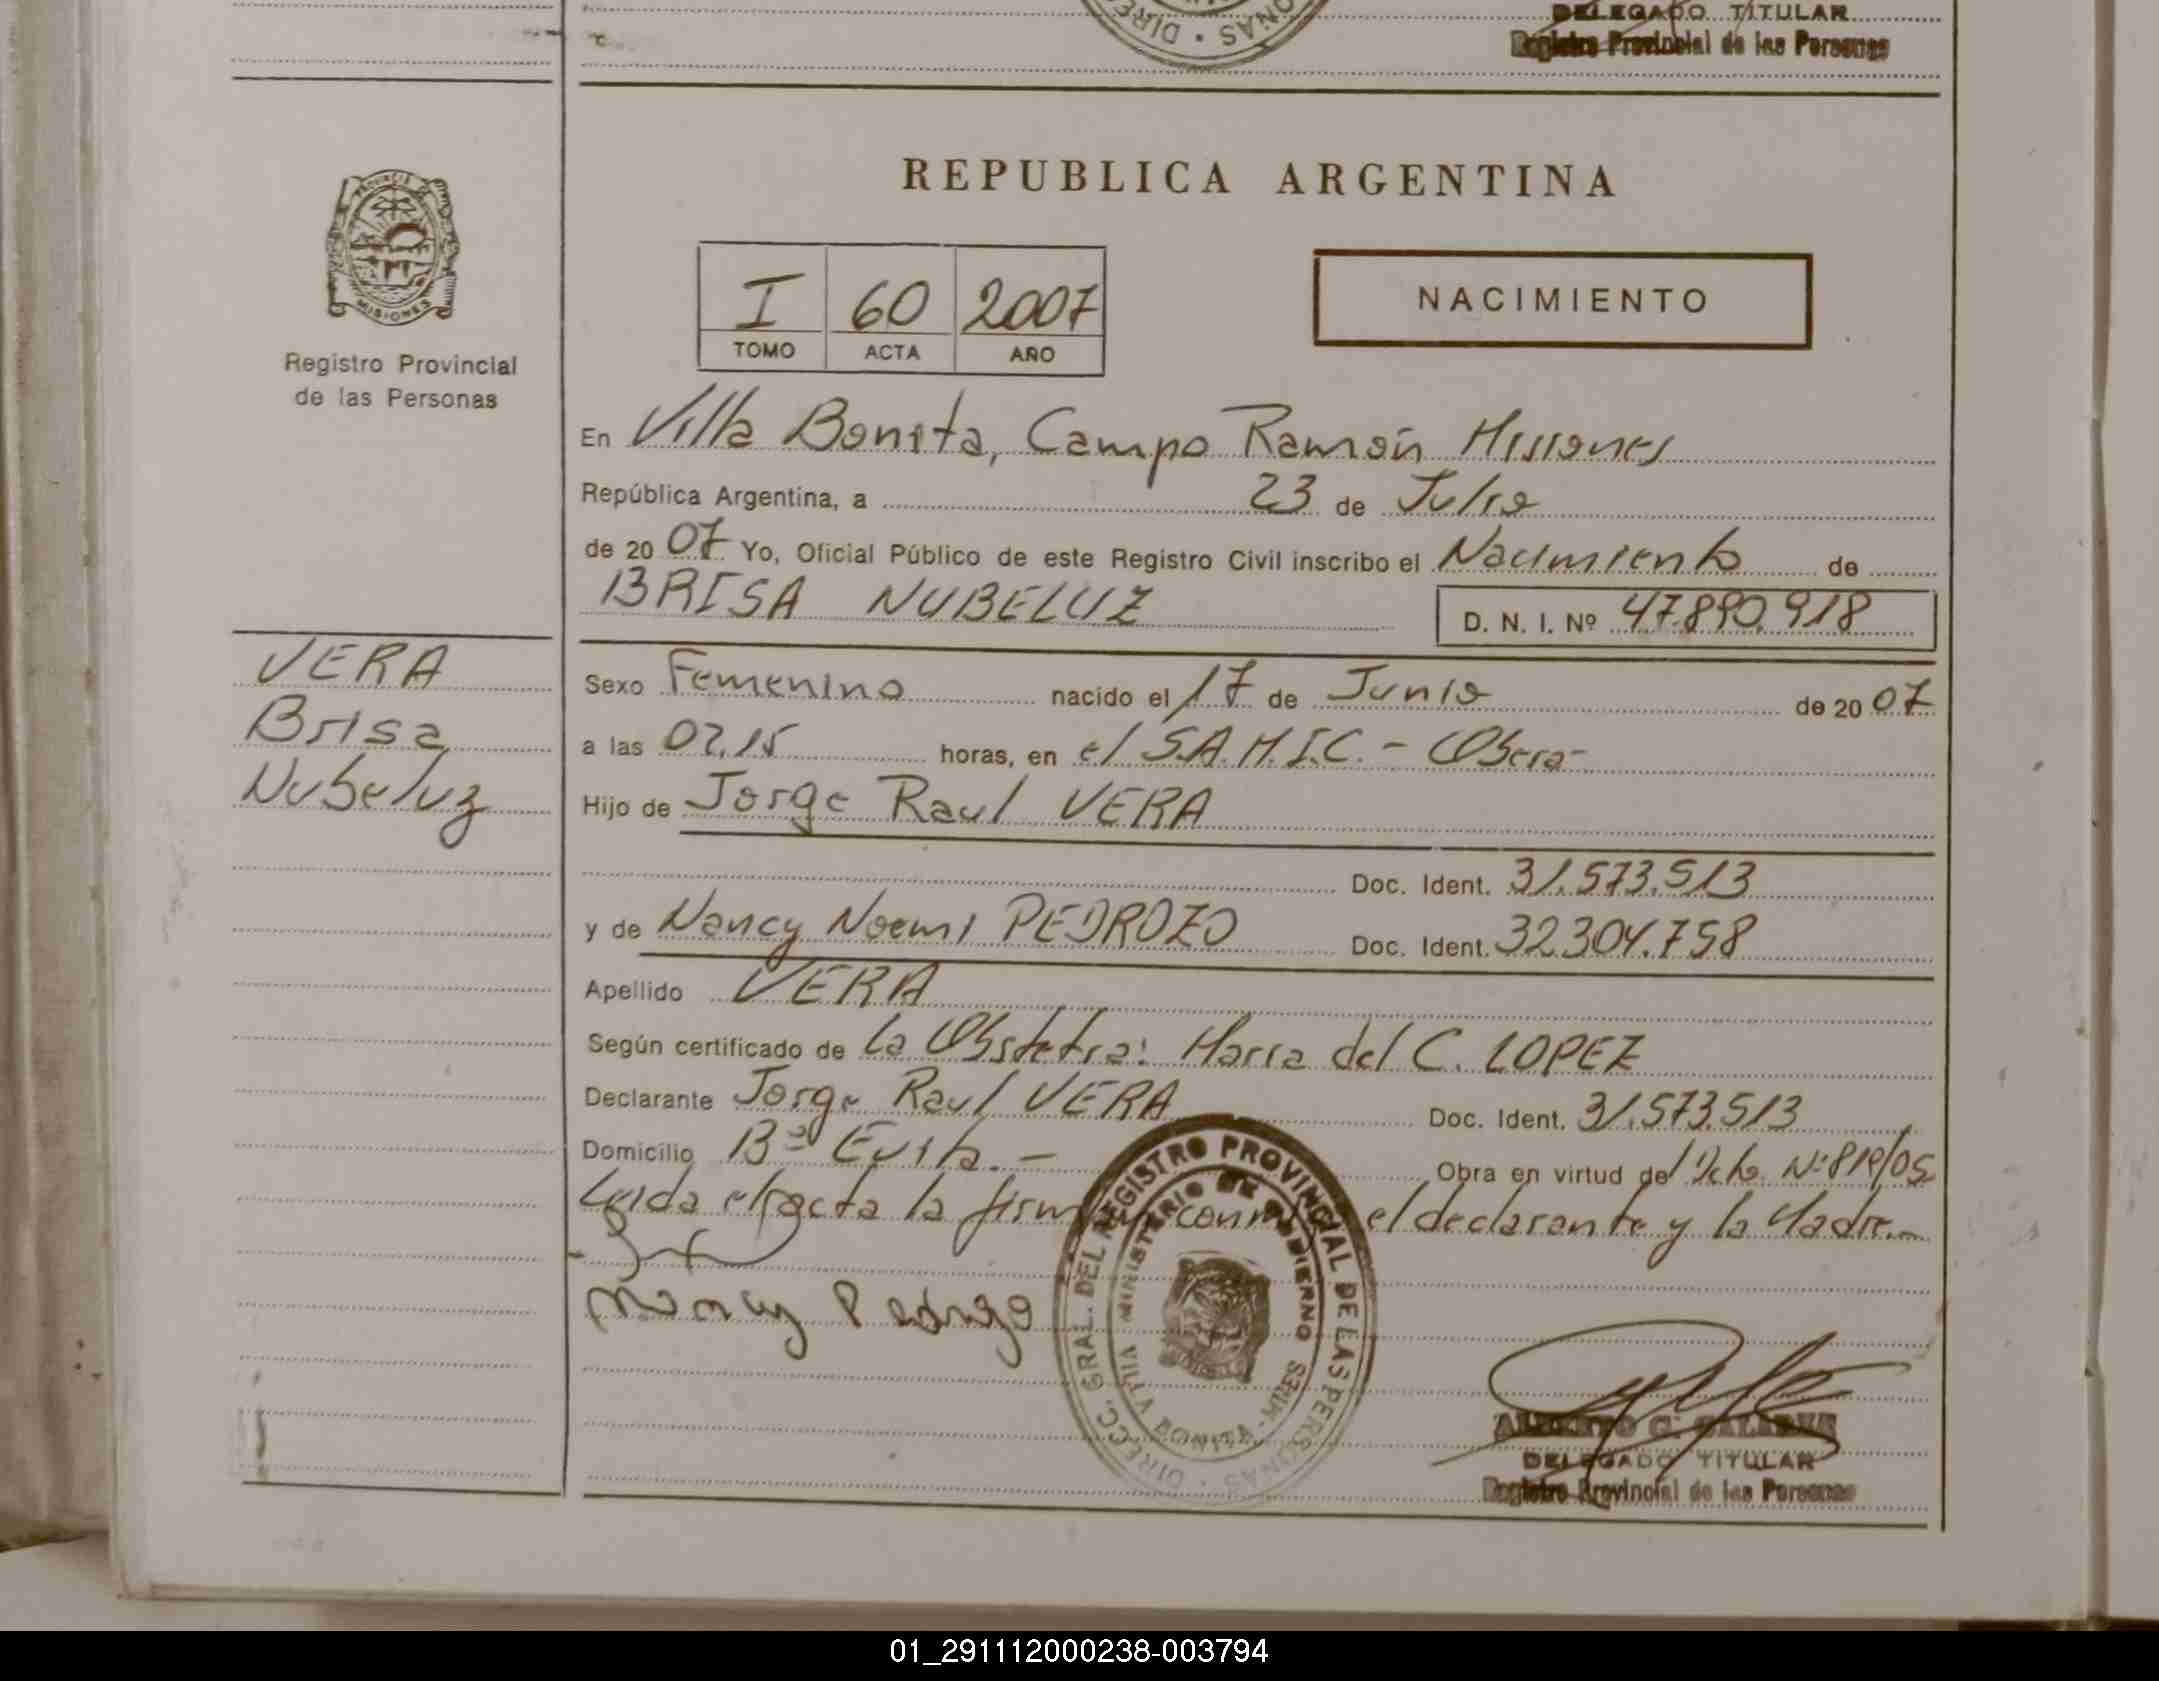 DIREC · ONAS
DELEGADO TITULAR
Registro Provincial de las Personas
REPUBLICA ARGENTINA
PROVINCIA DE
MISIONES
Registro Provincial
de las Personas
I 60 2007
TOMO ACTA AÑO
NACIMIENTO
En Villa Bonita, Campo Ramón Misiones
República Argentina, a 23 de Julio
de 2007 Yo, Oficial Público de este Registro Civil inscribo el Nacimiento de
BRISA NUBELUZ D. N. I. Nº 47.890.918
VERA
Brisa
Nubeluz
Sexo Femenino nacido el 17 de Junio de 2007
a las 02,15 horas, en el S.A.M.I.C. - Oberá-
Hijo de Jorge Raul VERA
Doc. Ident. 31.573.513
y de Nancy Noemi PEDROZO Doc. Ident. 32.304.758
Apellido VERA
Según certificado de la Obstetra: Maria del C. LOPEZ
Declarante Jorge Raul VERA Doc. Ident. 31.573.513
Domicilio Bº Evita.- Obra en virtud del Dcto Nº 819/05
Leida el acta la firman conmigo el declarante y la Madre.
Nancy Pedrozo
DIRECC. GRAL. DEL REGISTRO PROVINCIAL DE LAS PERSONAS ·
MINISTERIO DE GOBIERNO
VILLA BONITA - MNES
DELEGADO TITULAR
Registro Provincial de las Personas
01_291112000238-003794